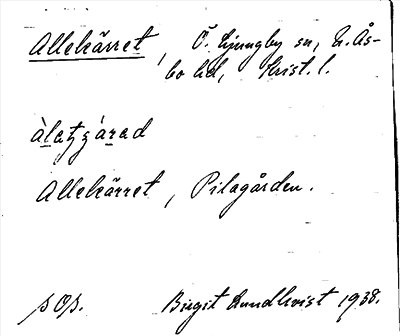 Allekärret, Ö. Ljungby sn, N. Ås-
bo hd, Krist. l.
àlatzárad
Allekärret, Pilagården.
Birgit Lundkvist 1938.